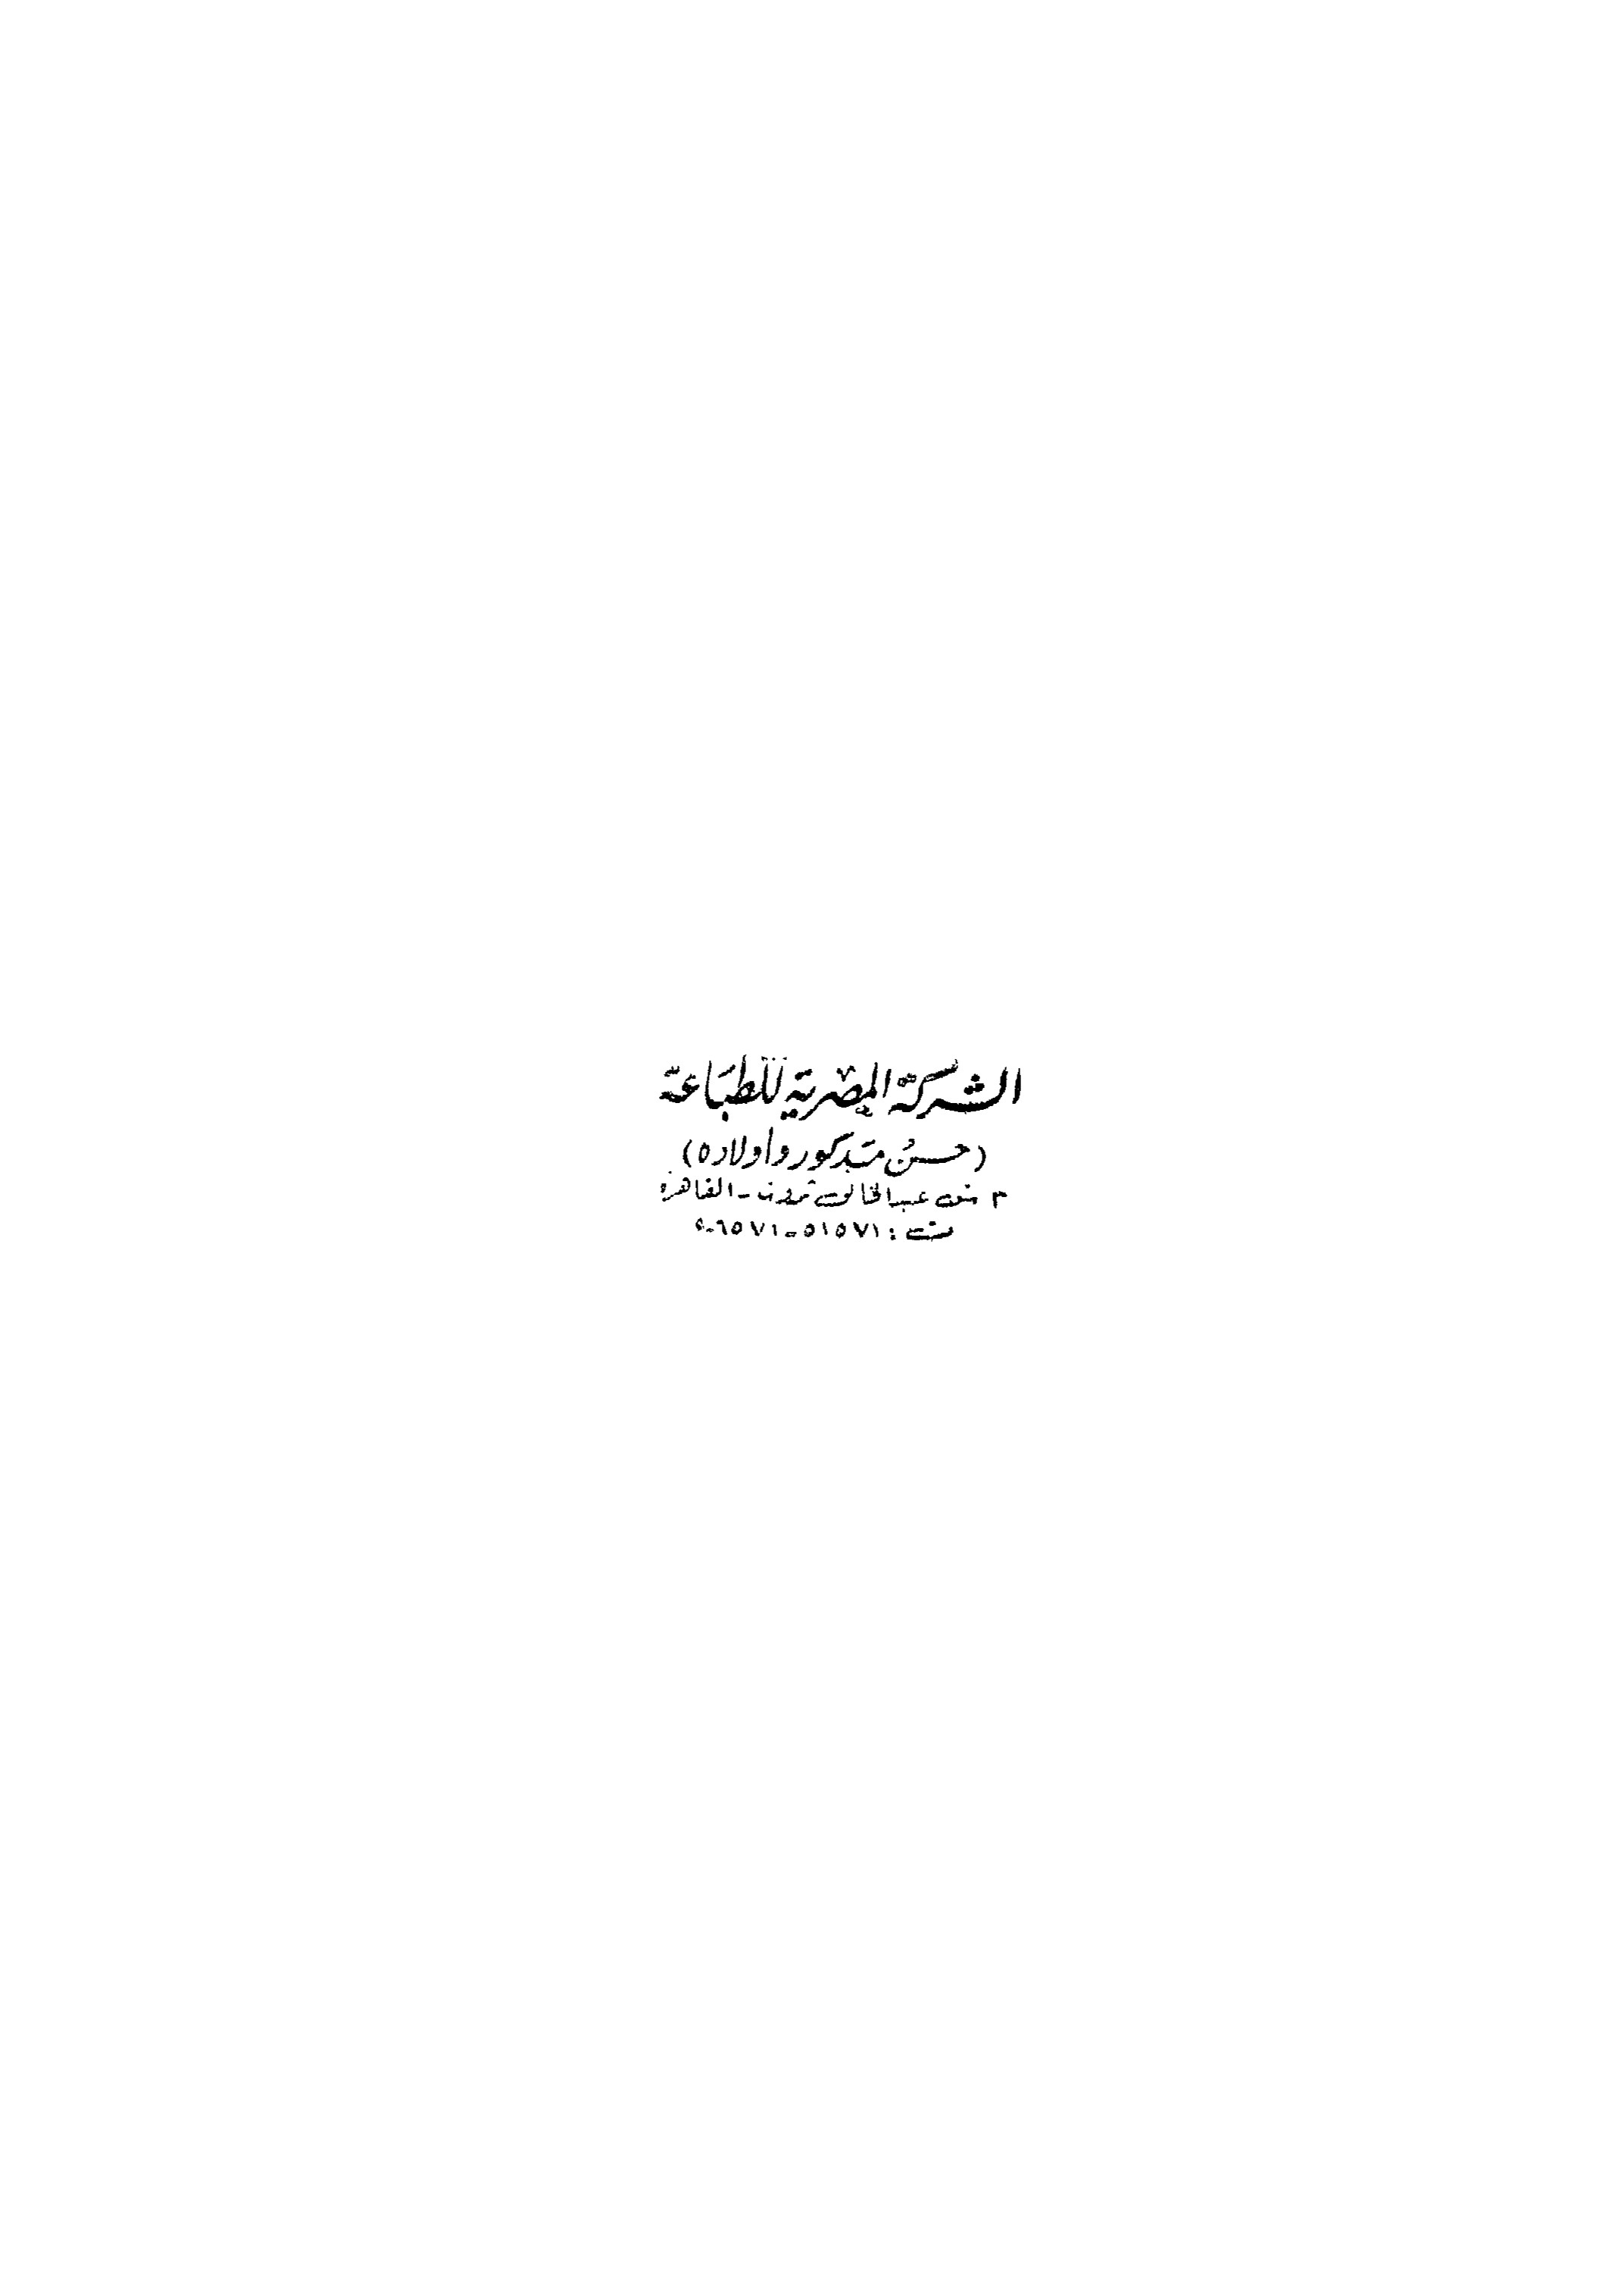 الشركة المصرية للطباعة
(حسن مدكور وأولاده)
٣ ش عبد الخالق ثروت - القاهرة
ت : ٥١٥٧١ -